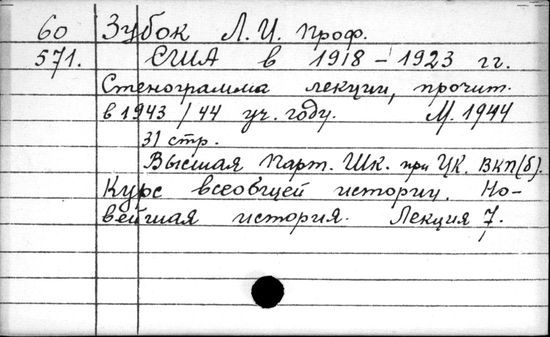 60 Зубок Л. И. проф.
571. США в 1918-1923 гг.
Стенограмма лекции, прочит.
в 1943/44 уч. году. М. 1944
31 стр.
Высшая Парт. Шк. при ЦК. ВКП(б).
Курс всеобщей истории. Но-
вейшая история. Лекция 7.